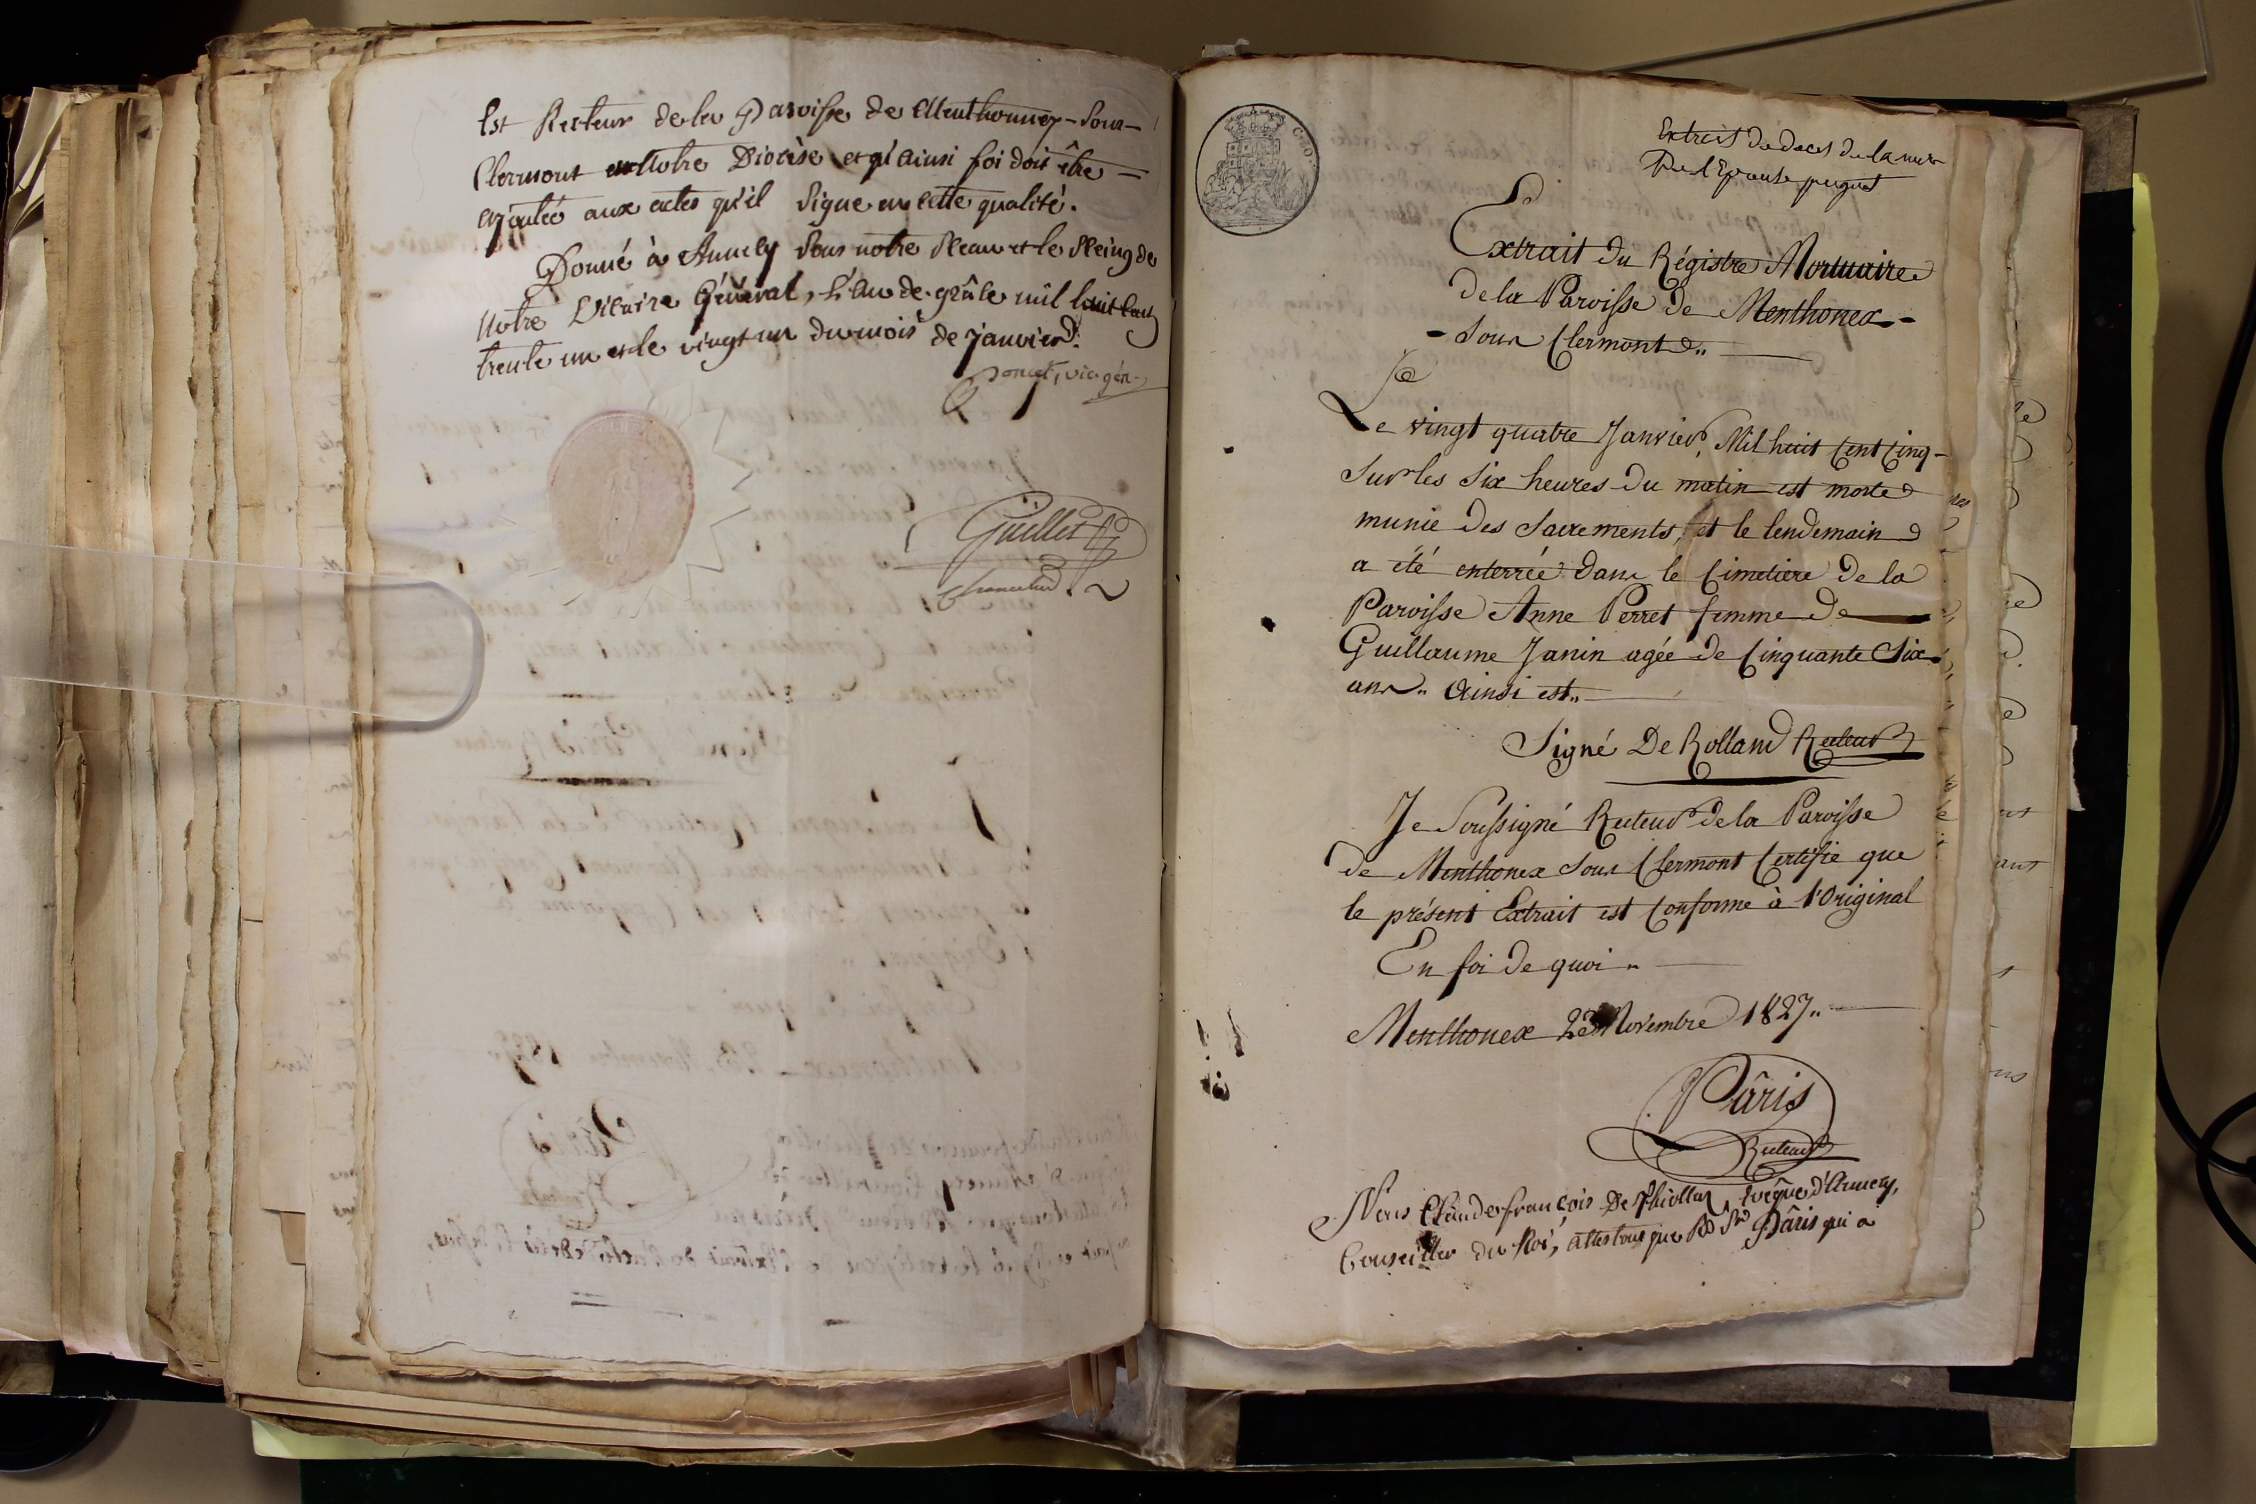 Est Recteur de la Paroisse de Menthonnex-Sous-
Clermont en Notre Diocèse et qu'ainsi foi doit être
ajoutée aux actes qu'il signe en cette qualité.
Donné à Annecy sous notre Sceau et le Seing de
Notre Vicaire Général, l'an de grâce mil huit cent
trente un et le vingt un du mois de janvier.
Poncet, vic. gén.
Guillet
Chancelier.
Extrait de deces de la mere
De l'Epouse pugnet
Extrait du Régistre Mortuaire
de la Paroisse de Menthonex-
- Sous Clermont„
Le vingt quatre Janvier, Mil huit Cent Cinq-
sur les Six heures du matin est morte
munie des Sacrements, et le lendemain
a été enterrée dans le Cimetière de la
Paroisse Anne Perret femme De
Guillaume Janin agée de Cinquante Six
ans„ Ainsi est„
Signé De Rolland Recteur
Je Soussigné Recteur de la Paroisse
de Menthonex Sous Clermont Certifie que
le présent Extrait est Conforme à l'Original
En foi de quoi„
Menthonex Novembre 1827„
Pâris
Recteur
Nous Claude françois De Thiollaz, Evêque d'Annecy,
Conseiller du Roi, attestons que Rd Sr Pâris qui a